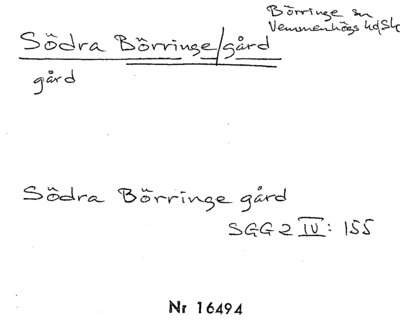 Börringe sn
Vemmenhögs hd, Sk
Södra Börringe/gård
gård
Södra Börringe gård
SGG 2 IV: 155
Nr 16494